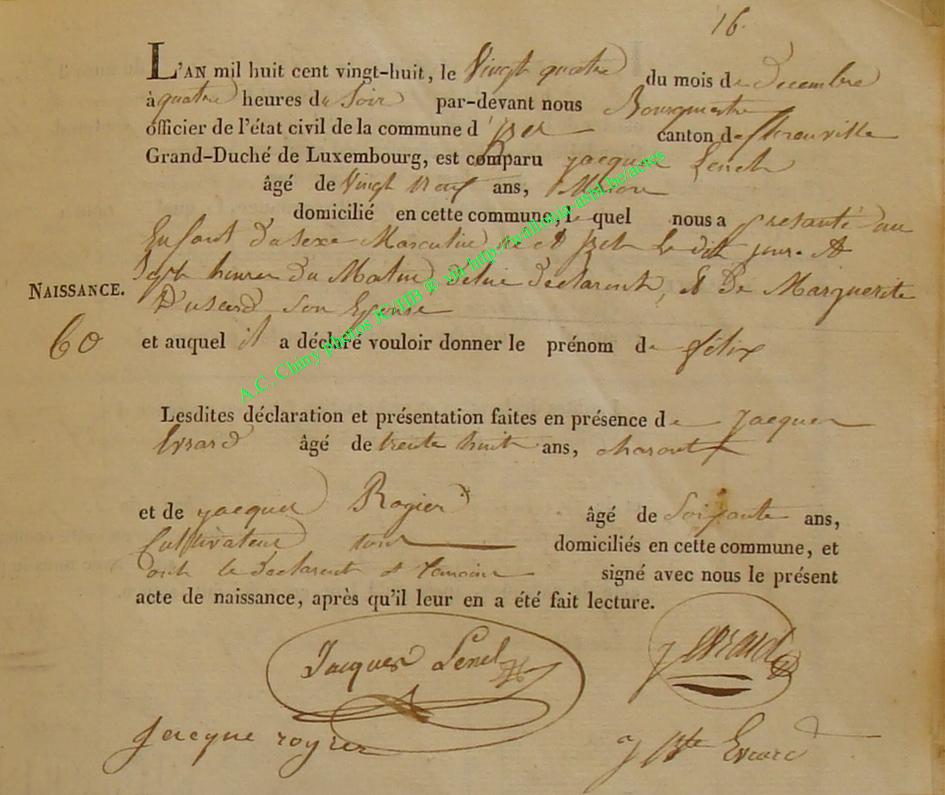 16.
L'AN mil huit cent vingt-huit, le Vingt quatre du mois de Decembre
à quatre heures du Soir par-devant nous Bourgmestre
officier de l'état civil de la commune d'Izel canton de florenville
Grand-Duché de Luxembourg, est comparu jacques Lench
âgé de Vingt neuf ans, Maçon
domicilié en cette commune, le quel nous a presanté un
Enfant du sexe Masculin né à Izel le dit jour A
Sept heures du Matin de lui declarant, & De Marguerite
son Epouse
NAISSANCE.
60 et auquel il a déclaré vouloir donner le prénom de félix
A.C. Chiny photos JC-HB ® via http://wallonia-asbl.be/actes
Lesdites déclaration et présentation faites en présence de Jacques
Evrard âgé de trente huit ans,
et de jacques Rogier âgé de Soixante ans,
Cultivateur tous domiciliés en cette commune, et
ont le declarant et temoins signé avec nous le présent
acte de naissance, après qu'il leur en a été fait lecture.
Jacques Lench J evrard
jacque royer J Bte Evrard